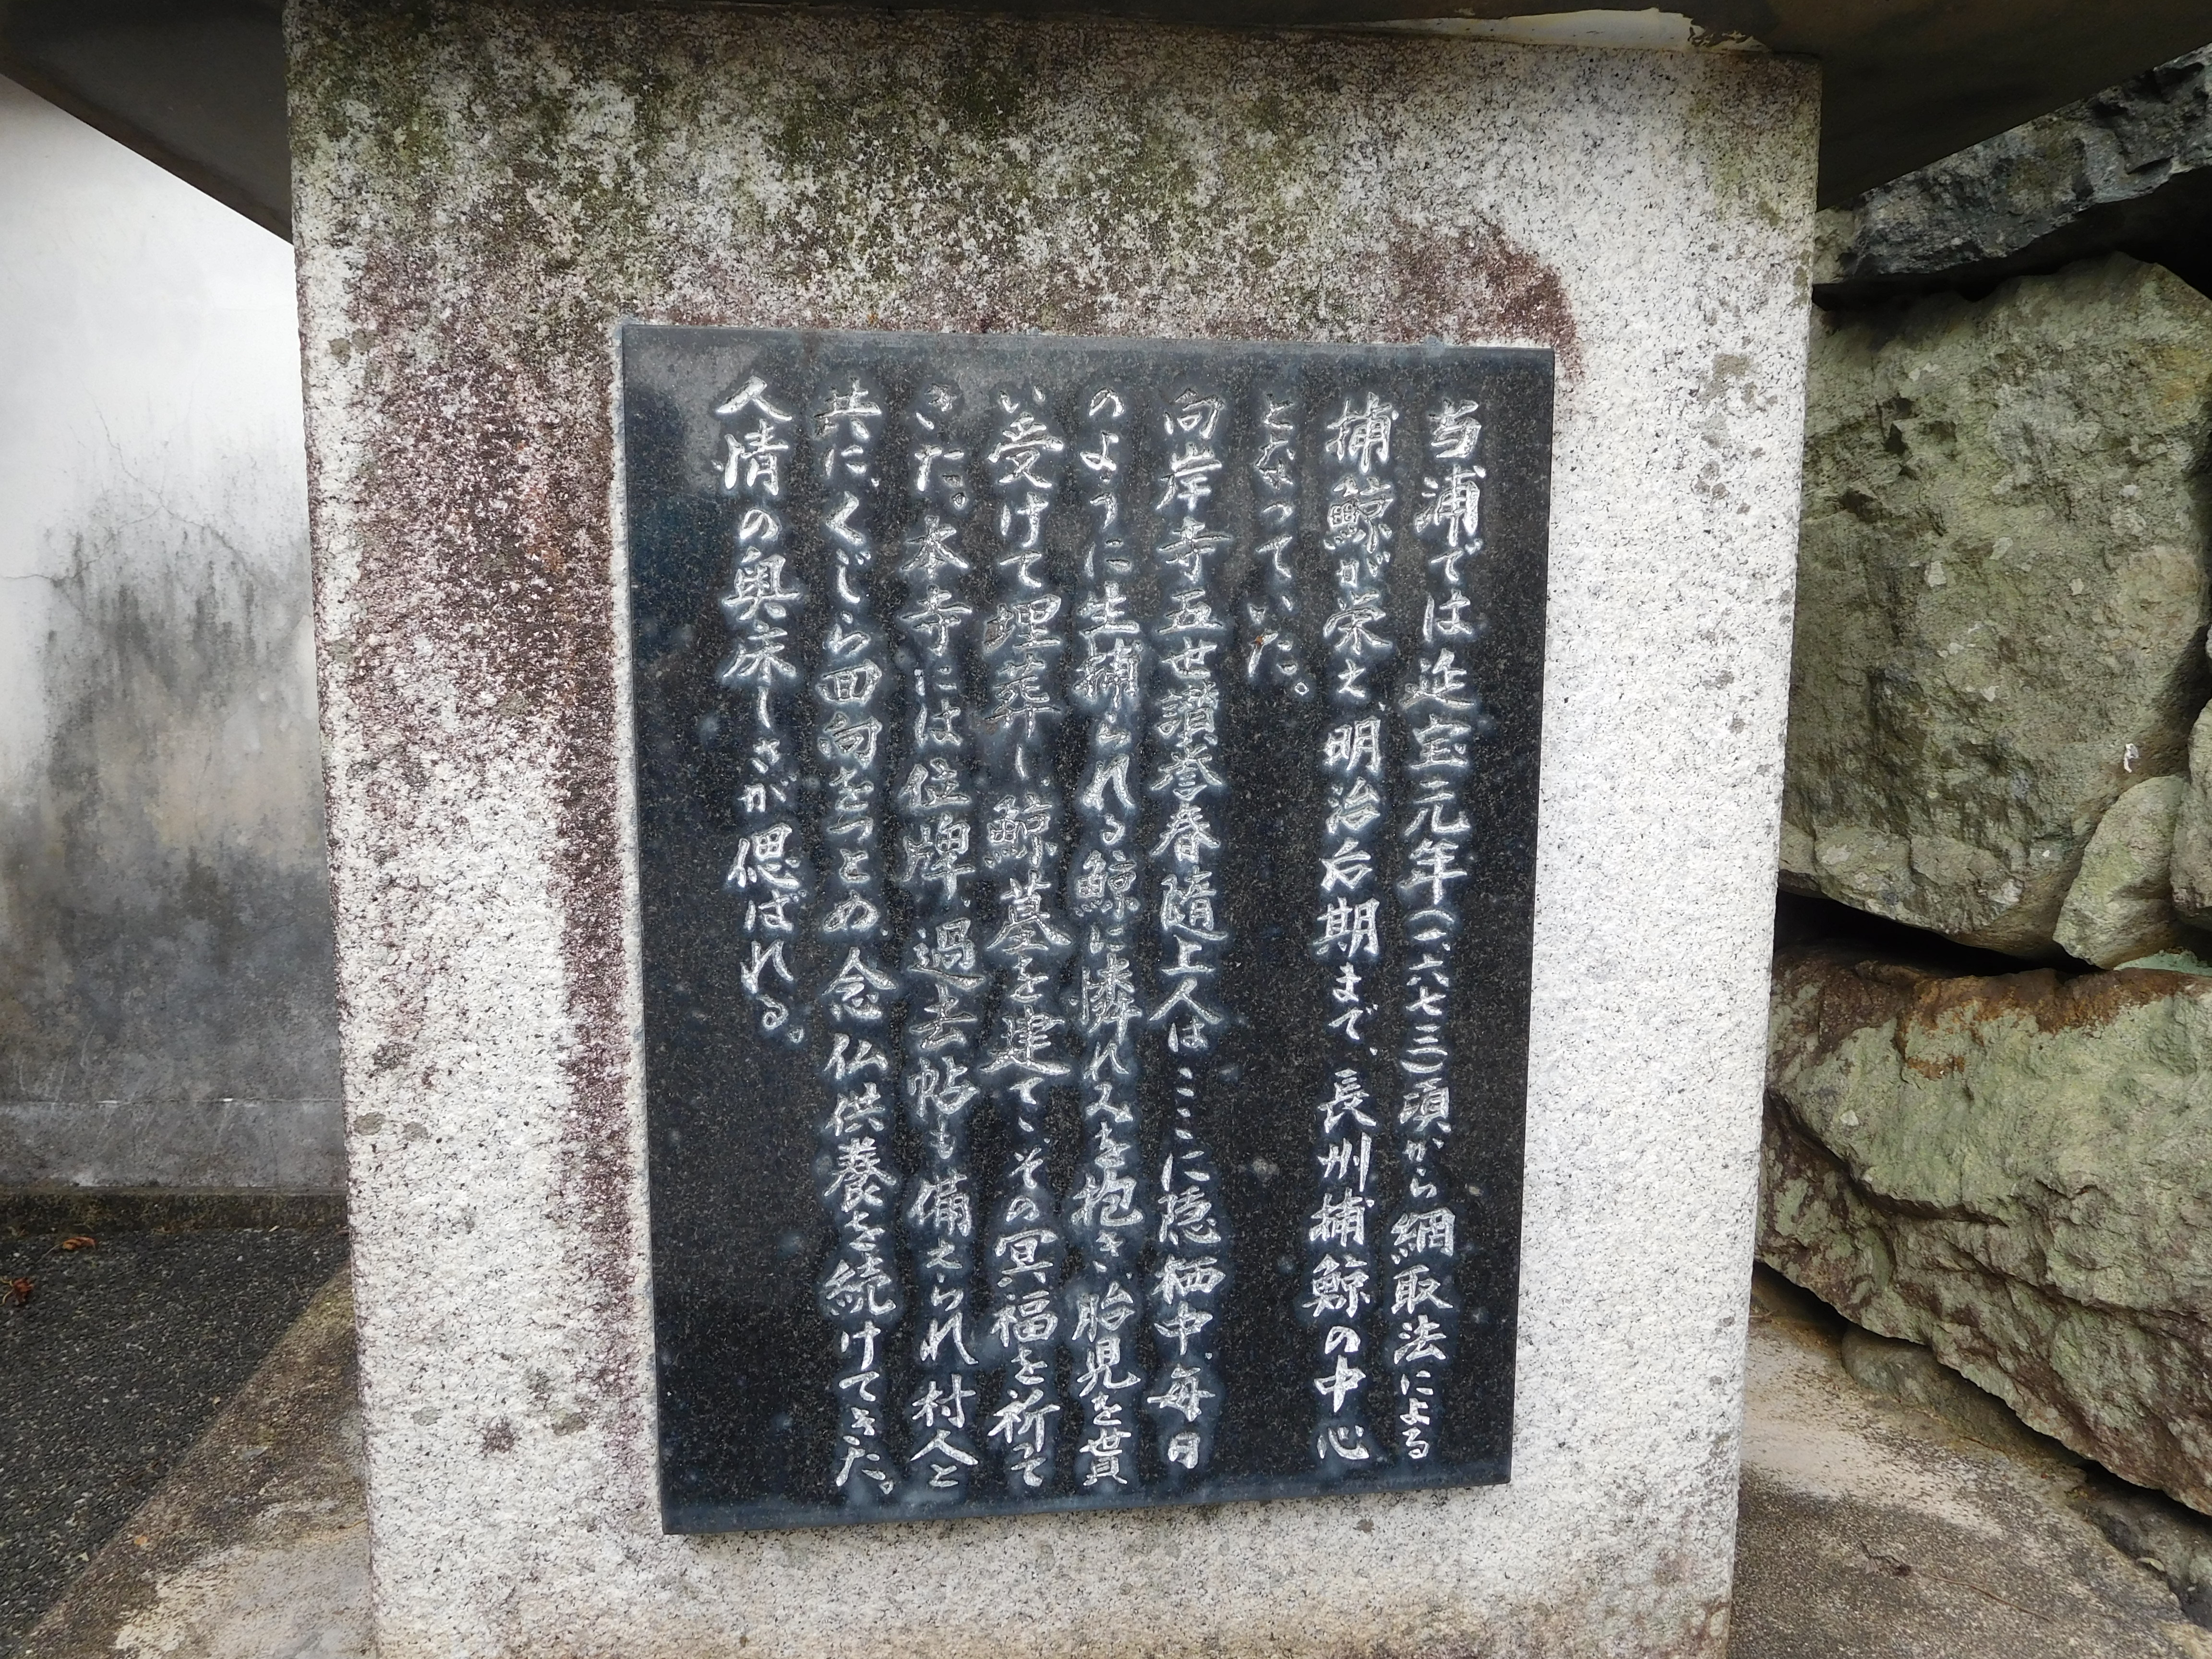 当浦では延宝元年(一六七三)頃から網取法による
捕鯨が栄え、明治后期まで、長州捕鯨の中心
となっていた。
向岸寺五世讃誉春随上人は、ここに隠栖中、毎日
のように生捕られる鯨に憐れみを抱き、胎児を貰
い受けて埋葬し、鯨墓を建て、その冥福を祈って
きた。本寺には位牌、過去帖も備えられ村人と
共に、くじら回向をつとめ、念仏供養を続けてきた。
人情の奥床しさが偲ばれる。